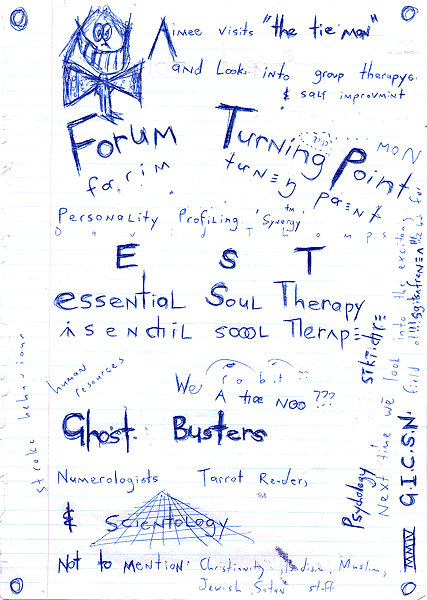 Aimee visits "the tie man"
and Looks into group therapys
& self improvmint
Forum Turning Point
fo.rim turnen poent
MAN
Personality Profiling 'Synergy' ™
E S T
essentiaL Soul Therapy
isendtiL soool Therape
human
resources
stroke behaviour
We robit
A tiæ NOO ???
Ghost Busters
Numerologists Tarrot Reders
& Scientology
Not to Mention: Christianity, Muslim,
Jewish, Satan stuff
Psychology
sikidire
Next time we look into the exciting
field of
G.I.C.S.N.
MMIV